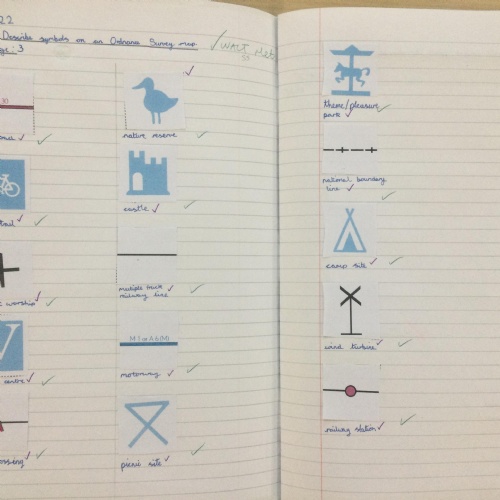 22
Describe symbols on an Ordnance Survey map
WALT Met
30
native reserve
castle
worship
multiple track
railway line
centre
M1 or A6(M)
motorway
picnic site
theme/pleasure
park
national boundary
line
camp site
wind turbine
railway station